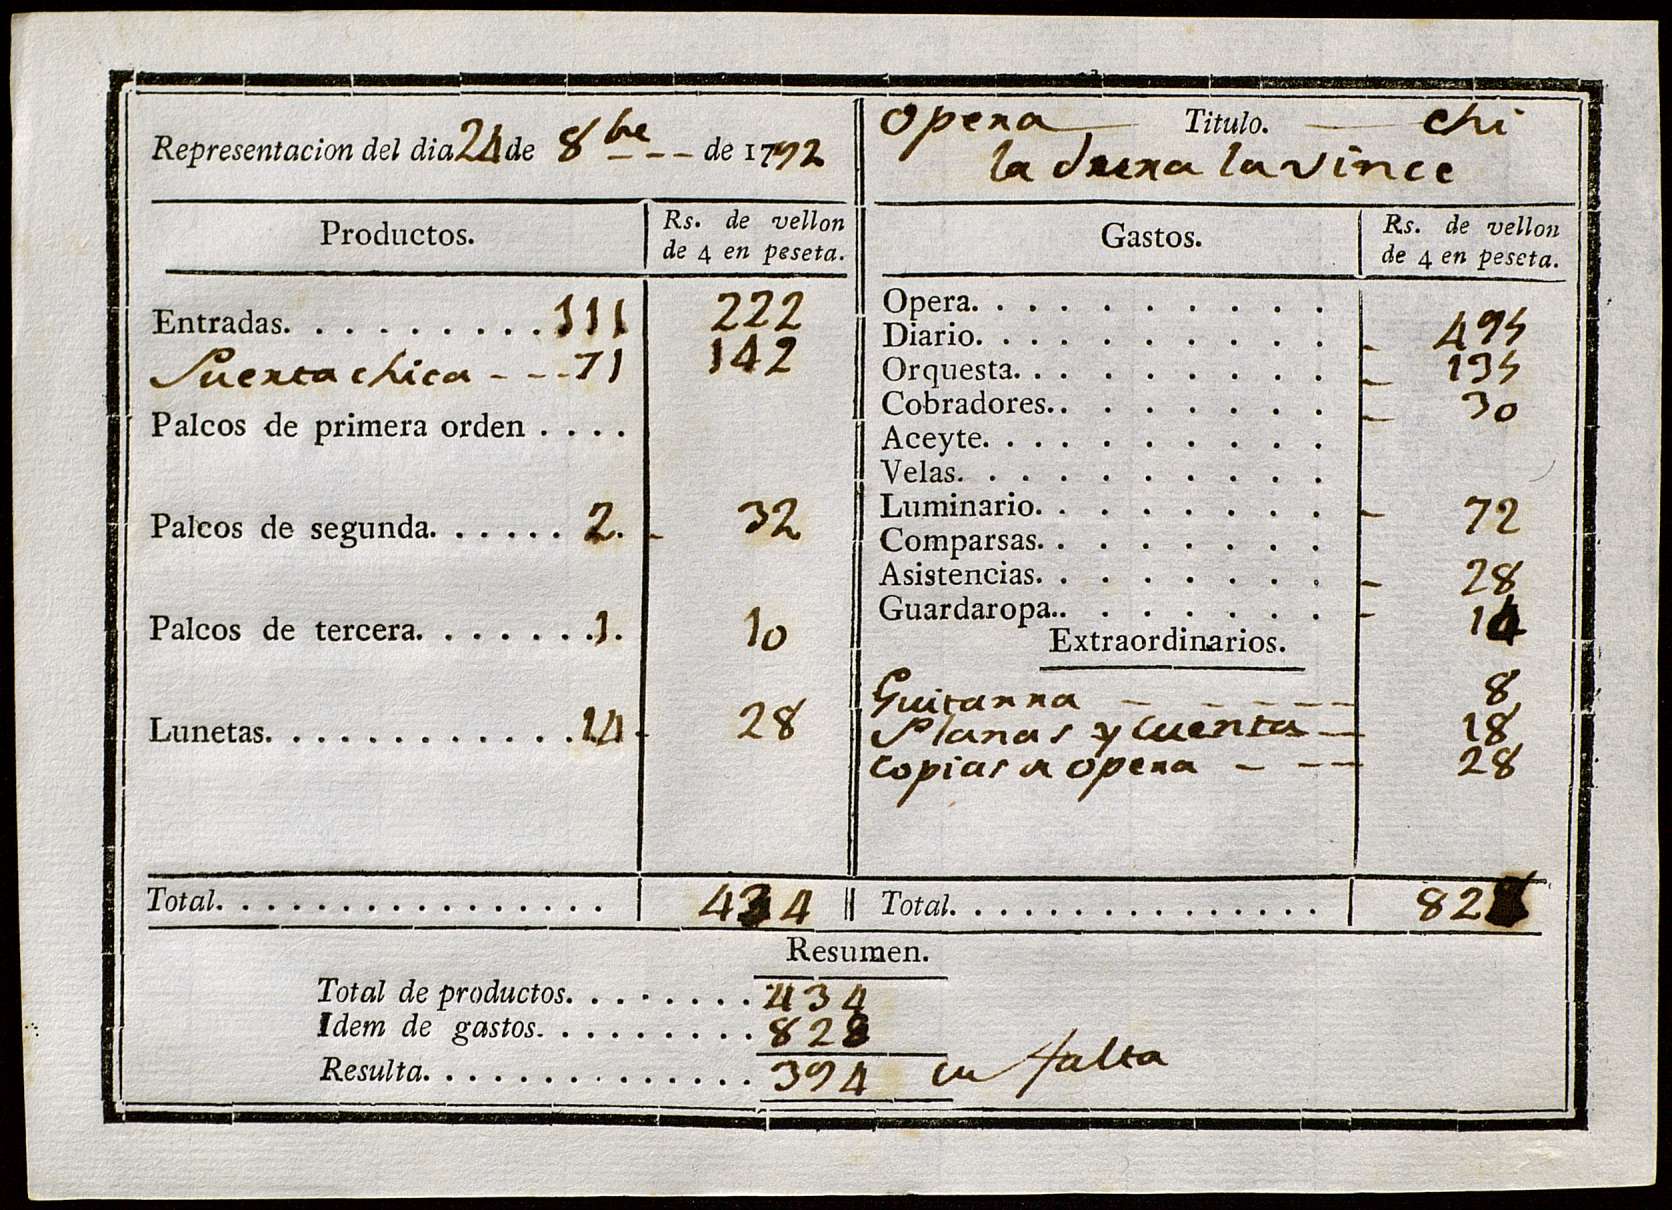 Representacion del dia 24 de 8bre --- de 1792
Productos.
Rs. de vellon
de 4 en peseta.
Entradas. . . . . . . . . 111 222
Puerta chica - - - 71 142
Palcos de primera orden . . . .
Palcos de segunda. . . . . . 2. 32
Palcos de tercera. . . . . . . 1. 10
Lunetas. . . . . . . . . . . . . 14. 28
Total. . . . . . . . . . . . . . . . . 434
Opera Titulo. chi
la dura la vince
Gastos.
Rs. de vellon
de 4 en peseta.
Opera. . . . . . . . . .
Diario. . . . . . . . . . 495
Orquesta. . . . . . . . . 135
Cobradores. . . . . . . . 30
Aceyte. . . . . . . . . .
Velas. . . . . . . . . .
Luminario. . . . . . . . 72
Comparsas. . . . . . . .
Asistencias. . . . . . . . 28
Guardaropa. . . . . . . . 14
Extraordinarios.
Guitarra - - - - - - 8
Planas y cuenta - - 18
copias a opera - - - 28
Total. . . . . . . . . . . . . . . . 828
Resumen.
Total de productos. . . . . . . . 434
Idem de gastos. . . . . . . . . . 828
Resulta. . . . . . . . . . . . . . 394 en falta